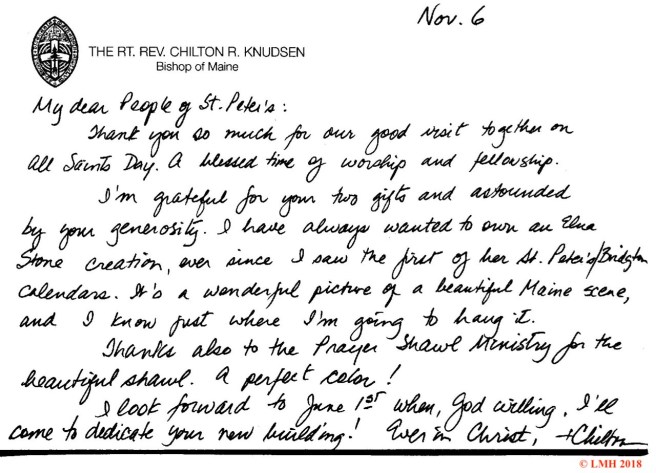 Nov. 6
THE RT. REV. CHILTON R. KNUDSEN
Bishop of Maine
My dear People of St. Peter's:
Thank you so much for our good visit together on
All Saints Day. A blessed time of worship and fellowship.
I'm grateful for your two gifts and astounded
by your generosity. I have always wanted to own an Elna
Stone creation, ever since I saw the first of her St. Peter's/Bridgton
calendars. It's a wonderful picture of a beautiful Maine scene,
and I know just where I'm going to hang it.
Thanks also to the Prayer Shawl Ministry for the
beautiful shawl. A perfect color!
I look forward to June 1st when, God willing, I'll
come to dedicate your new building! Ever in Christ, +Chilton
© LMH 2018